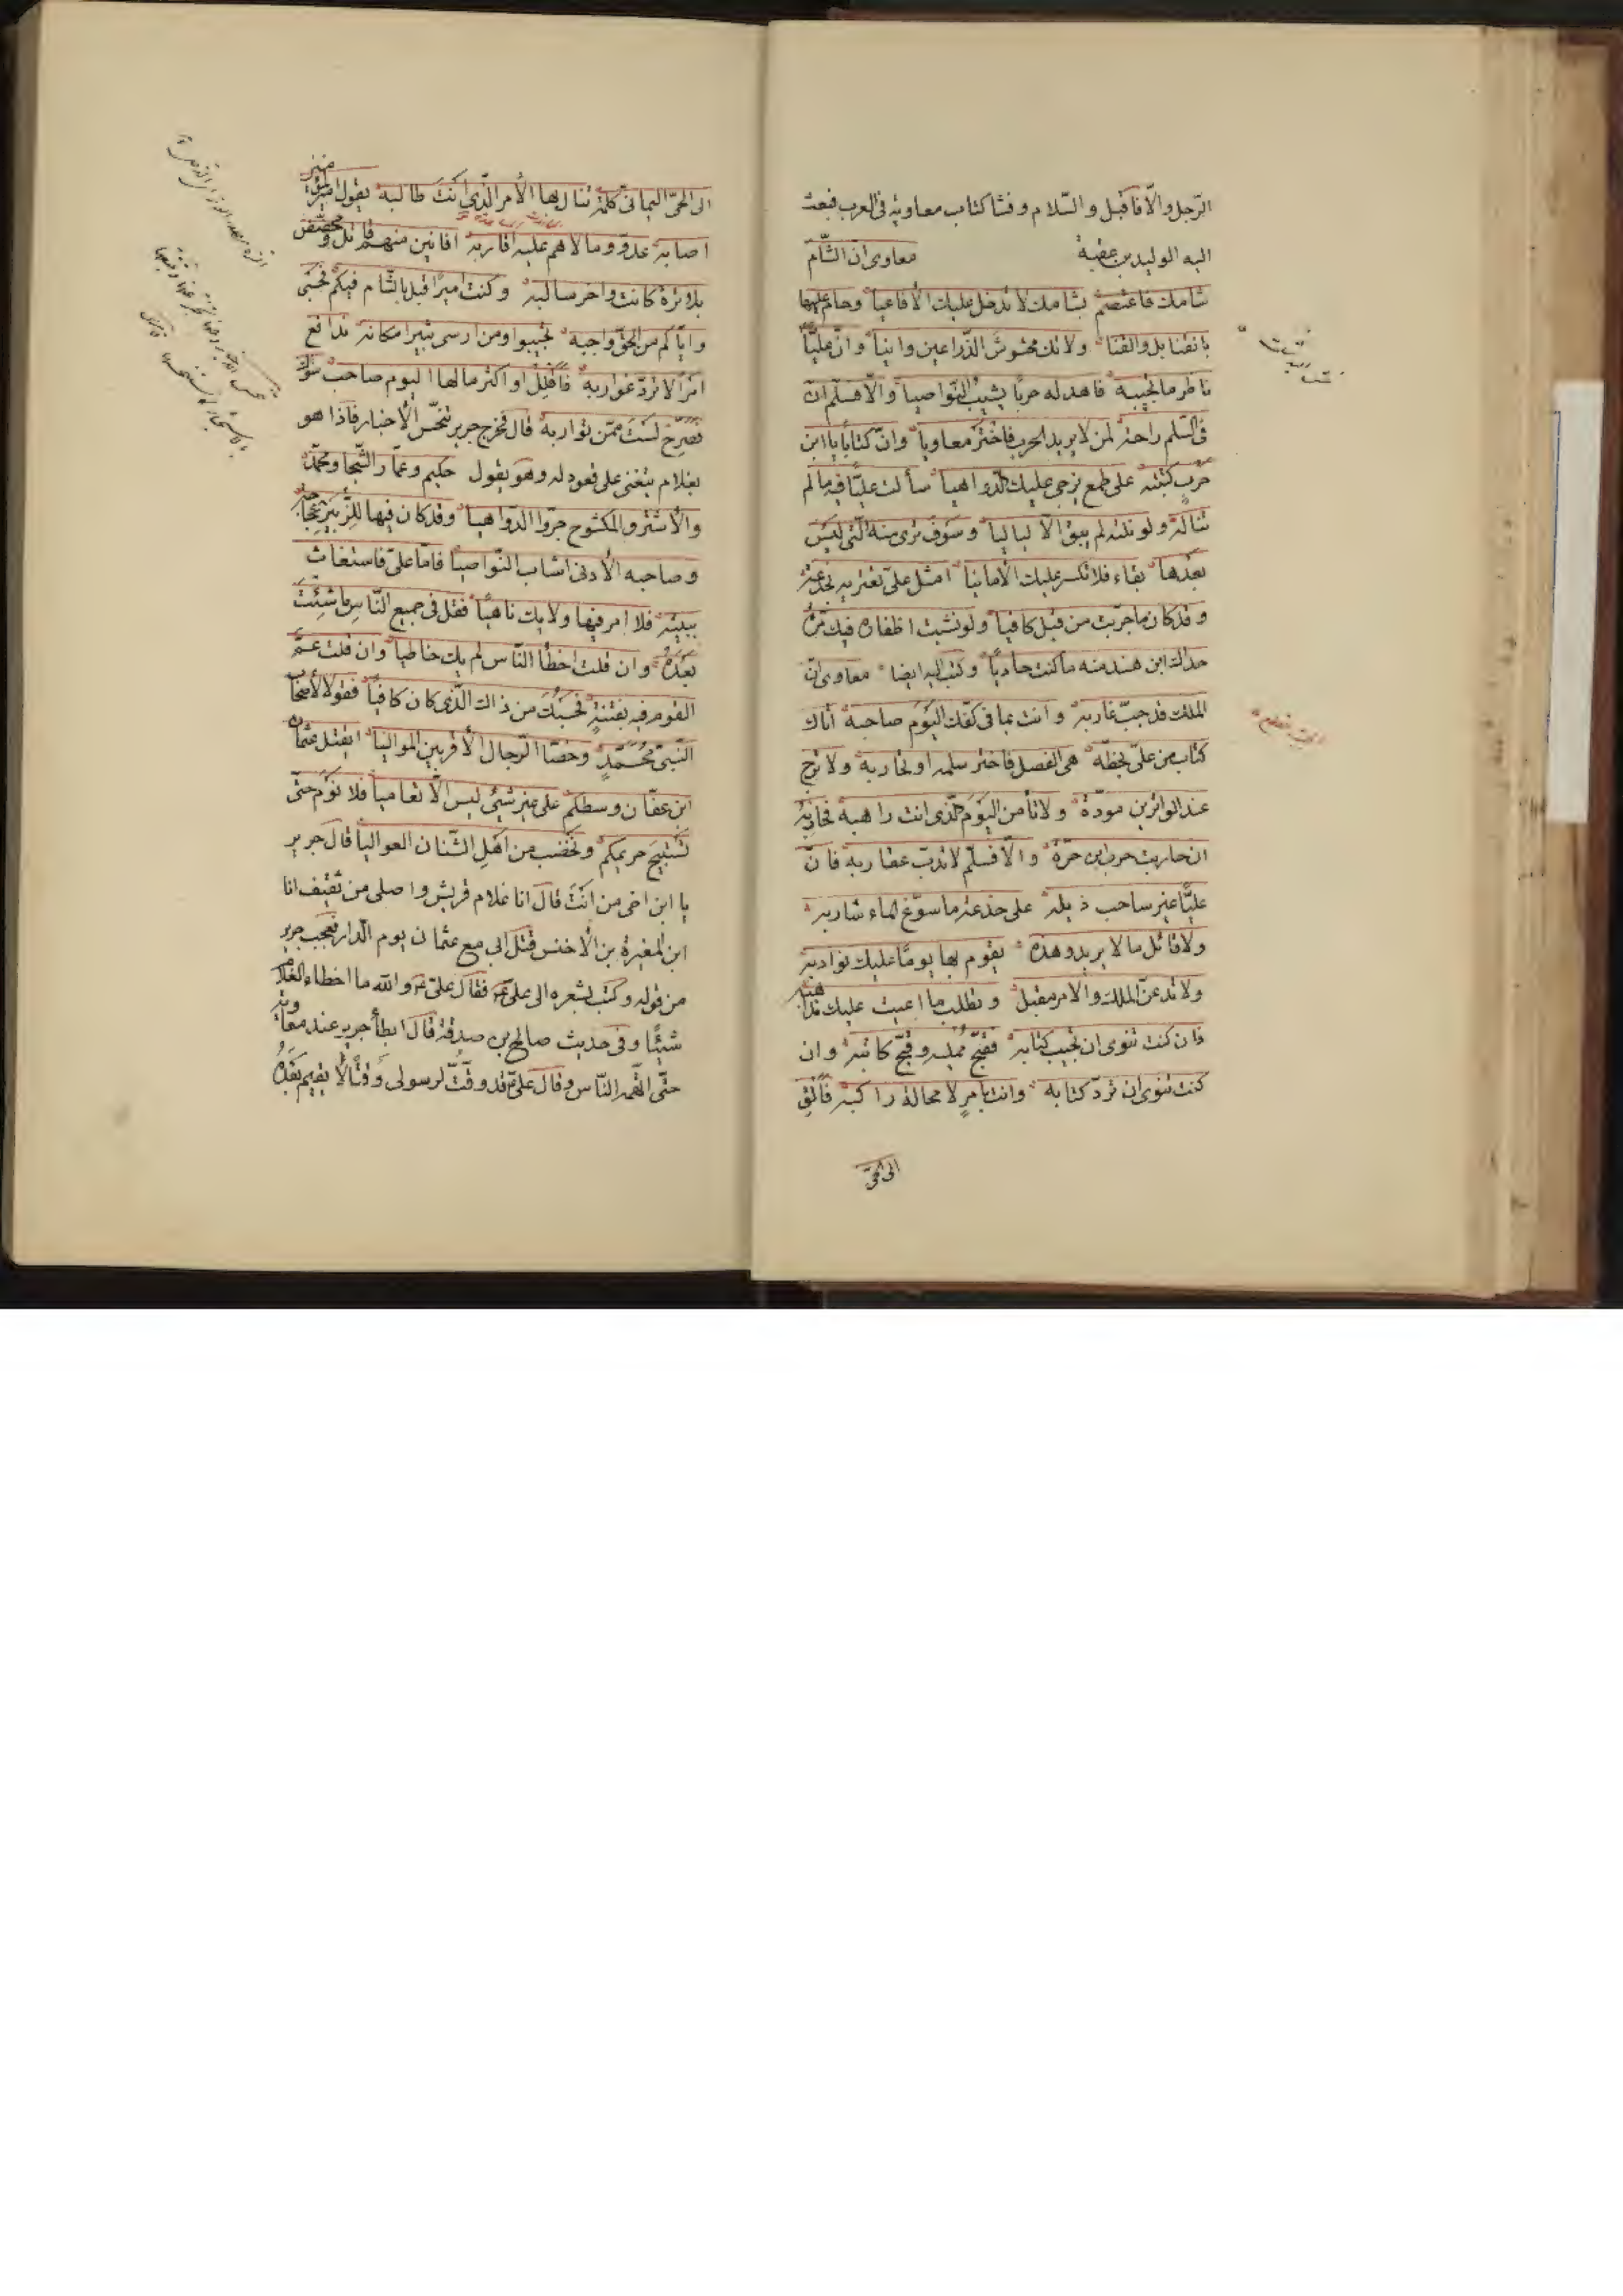 الرّجل والّا فاقبل والسّلام وفشا كتاب معاوية فى العرب فبعث
اليه الوليد بن عقبة معاوى انّ الشّام
شامك فاعتصم بشامك لا تدخل عليك الأفاعيا وحام عليها
بالقنابل والقنا ولا تك محشوش الذّراعين وانيا وانّ عليّا
ناظر ما تجيبه فاهد له حربا يشيب النّواصيا والّا فسلّم انّ
فى السّلم راحة لمن لا يريد الحرب فاختر معاويا وانّ كتابا يا ابن
حرب كتبته على طمع يزجى عليك الدّواهيا سألت عليّا فيه ما لم
تناله ولو نلته لم يبق الّا لياليا وسوف ترى منه الّتى ليس
بعدها بقاء فلا تكسر عليك الأمانيا امثل علىّ تعتريه بخدعة
وقد كان ما جرّبت من قبل كافيا ولو نشبت اظفاره فيك مرّة
حذاك ابن هند منه ما كنت حاذيا وكتب اليه ايضا معاوى انّ
الملك قد جبّ غاربه وانت بما فى كفّك اليوم صاحبه اتاك
كتاب من علىّ بخطّه هى الفصل فاختر سلمه او تحاربه ولا ترج
عند الواترين مودّة ولا تأمن اليوم الّذى انت راهبه فحاربه
ان حاربت حرب ابن حرّة والّا فسلّم لا تدبّ عقاربه فانّ
عليّا غير ساحب ذيله على خدعة ما سوّغ الماء شاربه
ولا قائل ما لا يريد وهذه يقوم بها يوما عليك نوادبه
ولا تدعنّ الملك والأمر مقبل وتطلب ما اعيت عليك مذاهبه
فان كنت تنوى ان تجيب كتابه فقبّح ممليه وقبّح كاتبه وان
كنت تنوى ان تردّ كتابه وانت بأمر لا محالة راكبه فألق
الى الحىّ
الى الحىّ اليمانى كلمة تنال بها الأمر الّذى انت طالبه يقول امير المؤمنين
اصابه عدوّ ومالاهم عليه اقاربه افانين منهم قاتل ومحضّض
بلا ترة كانت واخر سالبه وكنت اميرا قبل بالشّام فيكم فحسبى
وايّاكم من الحقّ واجبه تجيبوا ومن ارسى ثبيرا مكانه ندافع
امرا لا تردّ غواربه فأقلل او اكثر ما لها اليوم صاحب سواك
فصرّح لست ممّن تواربه قال فخرج جرير يتجسّس الأخبار فاذا هو
بغلام يتغنى على قعود له وهو يقول حكيم وعمّار الشّجا ومحمّد
والأشتر والمكشوح جرّوا الدّواهيا وقد كان فيها للزّبير عجاجة
وصاحبه الأدنى اشاب النّواصيا فامّا علىّ فاستغاث
ببيته فلا امر فيها ولا يك ناهيا فقل فى جميع النّاس ما شئت
بعده وان قلت اخطأ النّاس لم يك خاطيا وان قلت عمّ
القوم فيه بفتنة فحسبك من ذاك الّذى كان كافيا فقولا لأصحاب
النّبىّ محمّد وخصّا الرّجال الأقربين المواليا ايقتل عثمان
ابن عفّان وسطكم على غير شيئ ليس الّا تعاميا فلا نوم حتّى
نستبيح حريمكم ونخضب من اهل الشّنان العواليا قال جرير
يا ابن اخى من انت قال انا غلام قريش واصلى من ثقيف انا
ابن المغيرة بن الأخنس قتل ابى مع عثمان يوم الدّار فعجب جرير
من قوله وكتب بشعره الى علىّ ع فقال علىّ ع والله ما اخطاء الغلام
شيئا وفى حديث صالح بن صدقة قال ابطأ جرير عند معاوية
حتّى اتّهمه النّاس وقال علىّ ع قد وقّتّ لرسولى وقتا لا يقيم بعده